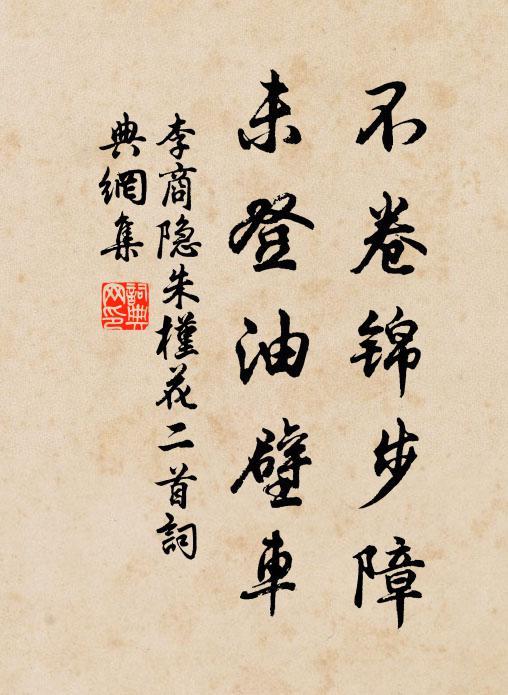 不卷锦步障
未登油壁車
李商隐朱槿花二首詞
典網集
詞典網印